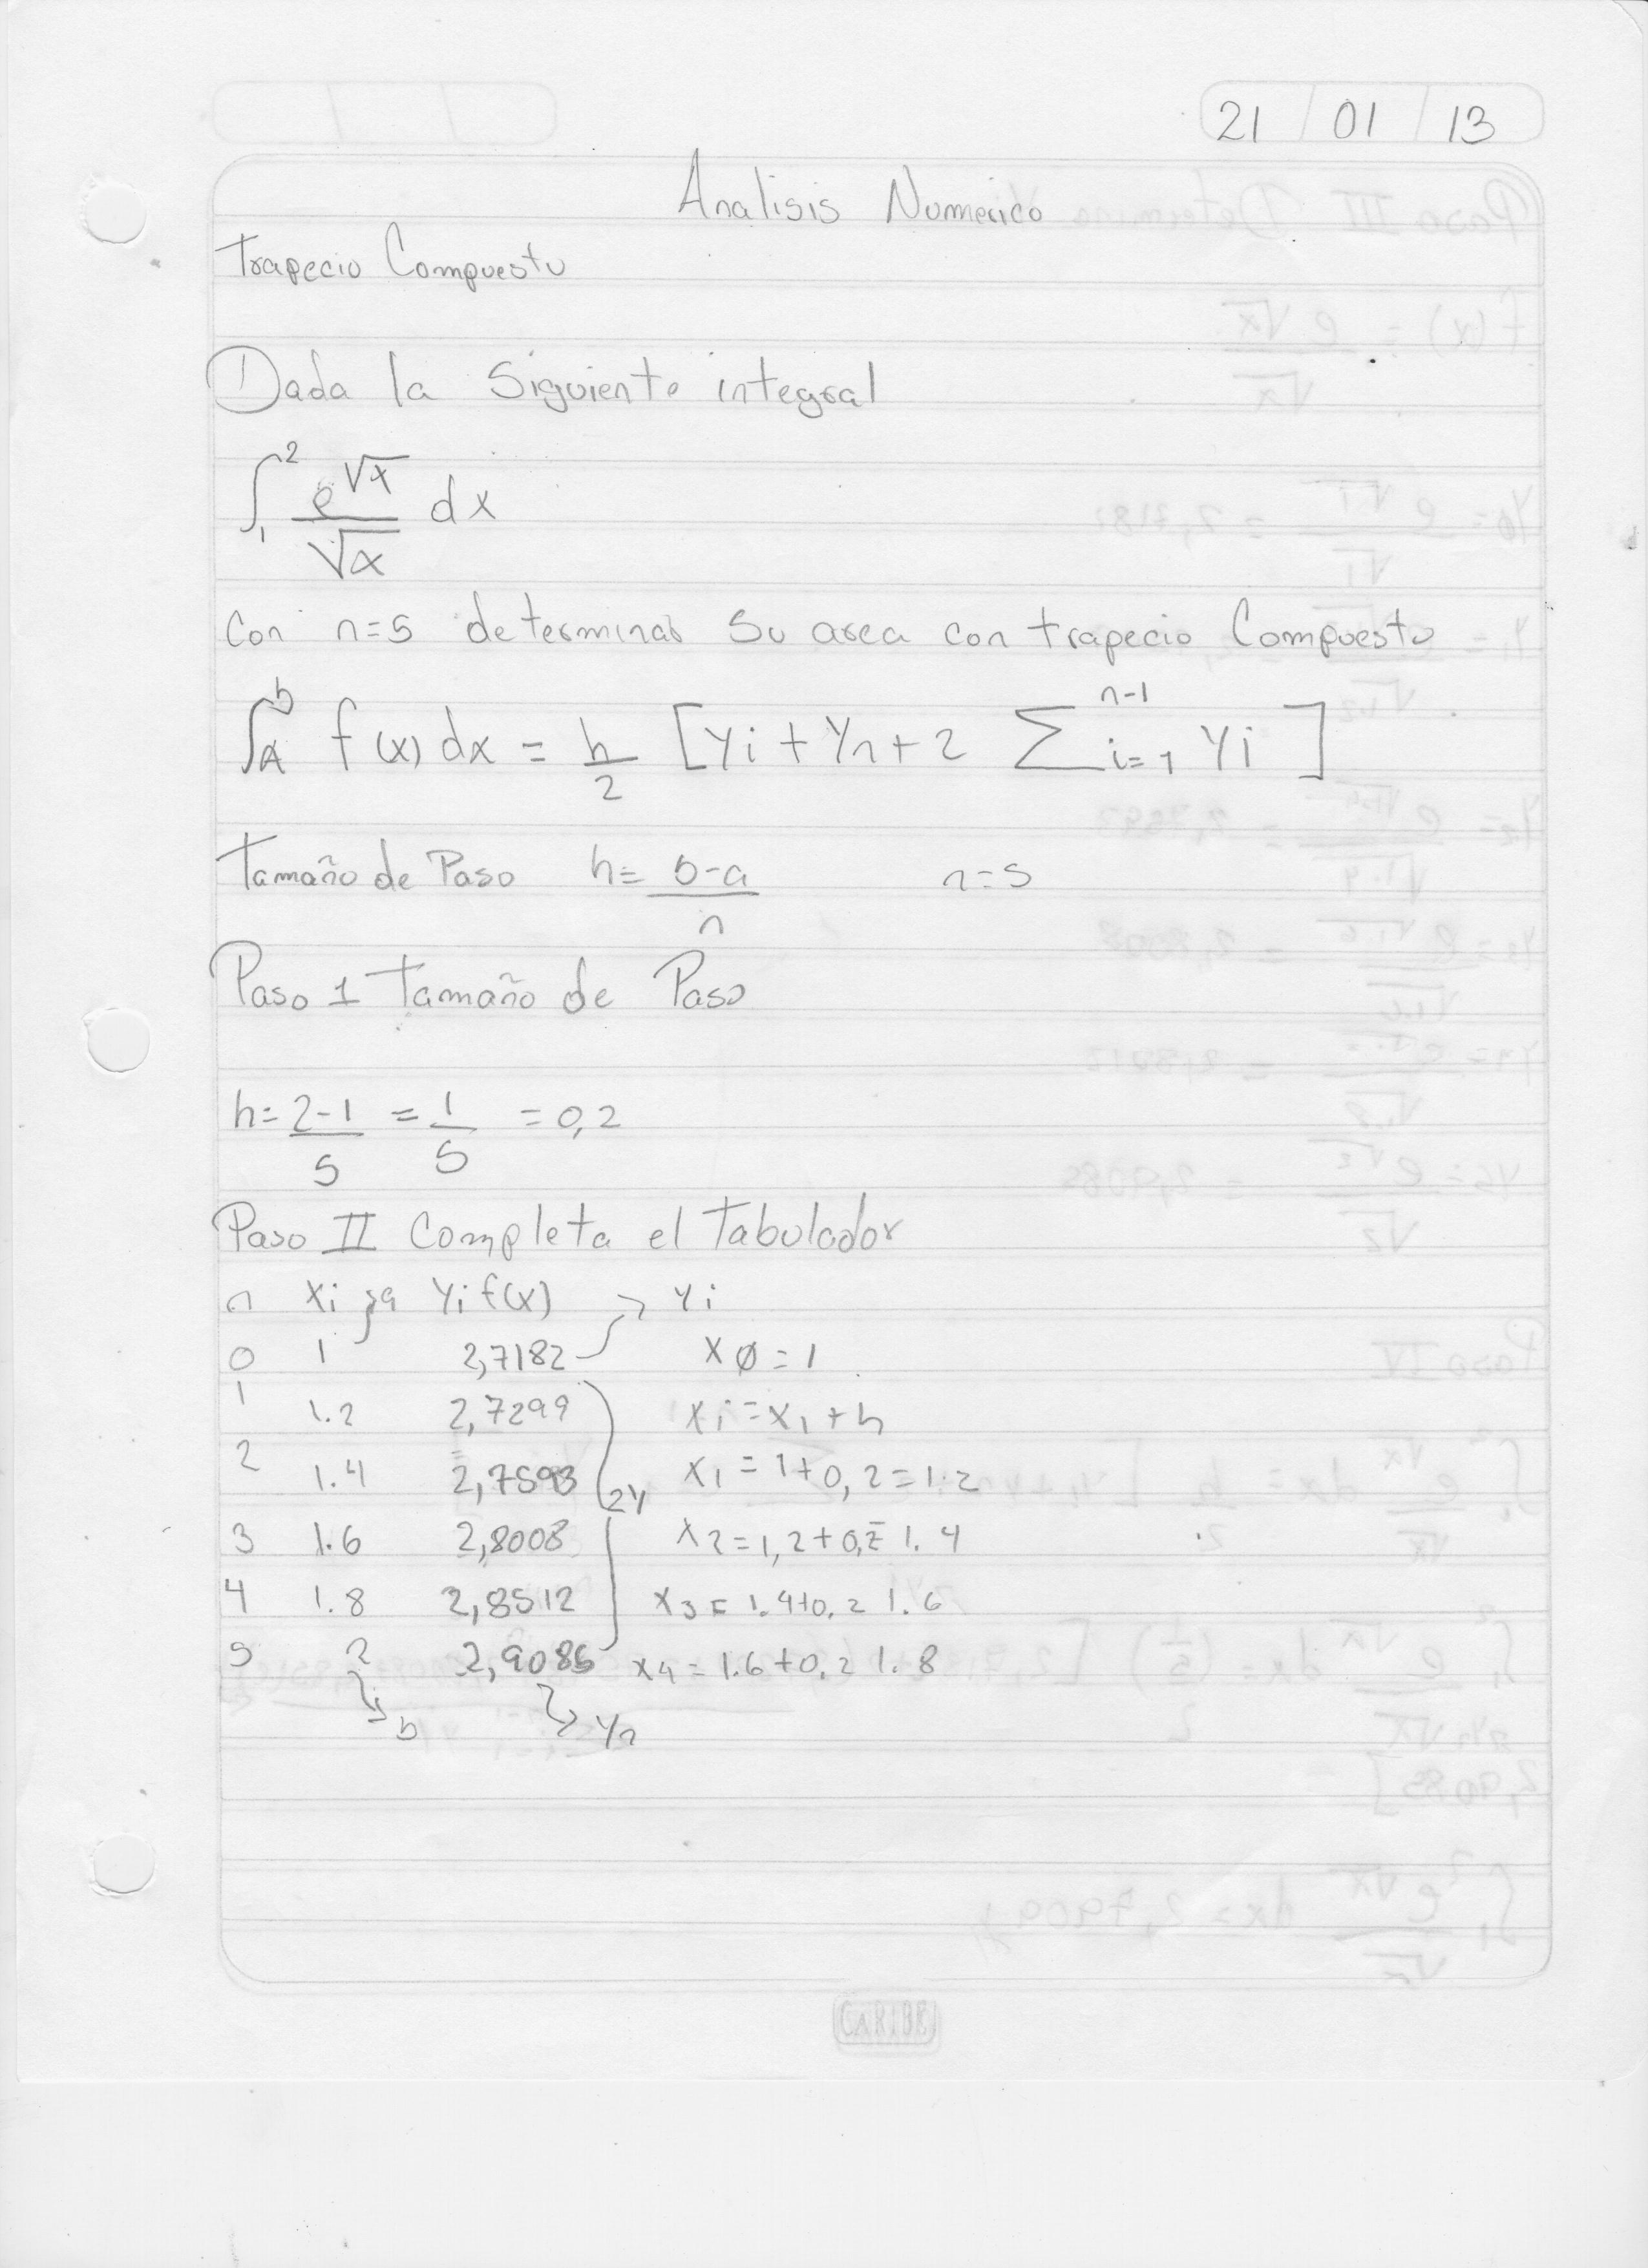 21 / 01 / 13
Analisis Numerico
Trapecio Compuesto
① Dada la Siguiente integral
∫₁² e^√x / √x dx
Con n=5 determinar Su area con trapecio Compuesto
∫ₐᵇ f(x) dx = h/2 [Yi + Yn + 2 Σ_{i=1}^{n-1} Yi ]
Tamaño de Paso h = b-a / n n=5
Paso 1 Tamaño de Paso
h= 2-1 / 5 = 1 / 5 = 0,2
Paso II Completa el Tabulador
n Xi →a Yi f(x) → Yi
0 1 2,7182 XØ = 1
1 1.2 2,7299 Xi = X1 + h
2 1.4 2,7593 2Y X1 = 1+0,2=1.2
3 1.6 2,8008 X2=1,2+0,2= 1.4
4 1.8 2,8512 X3 = 1.4+0.2 1.6
5 2 2,9086 X4 = 1.6+0.2 1.8
→ b → Yn
CARIBE